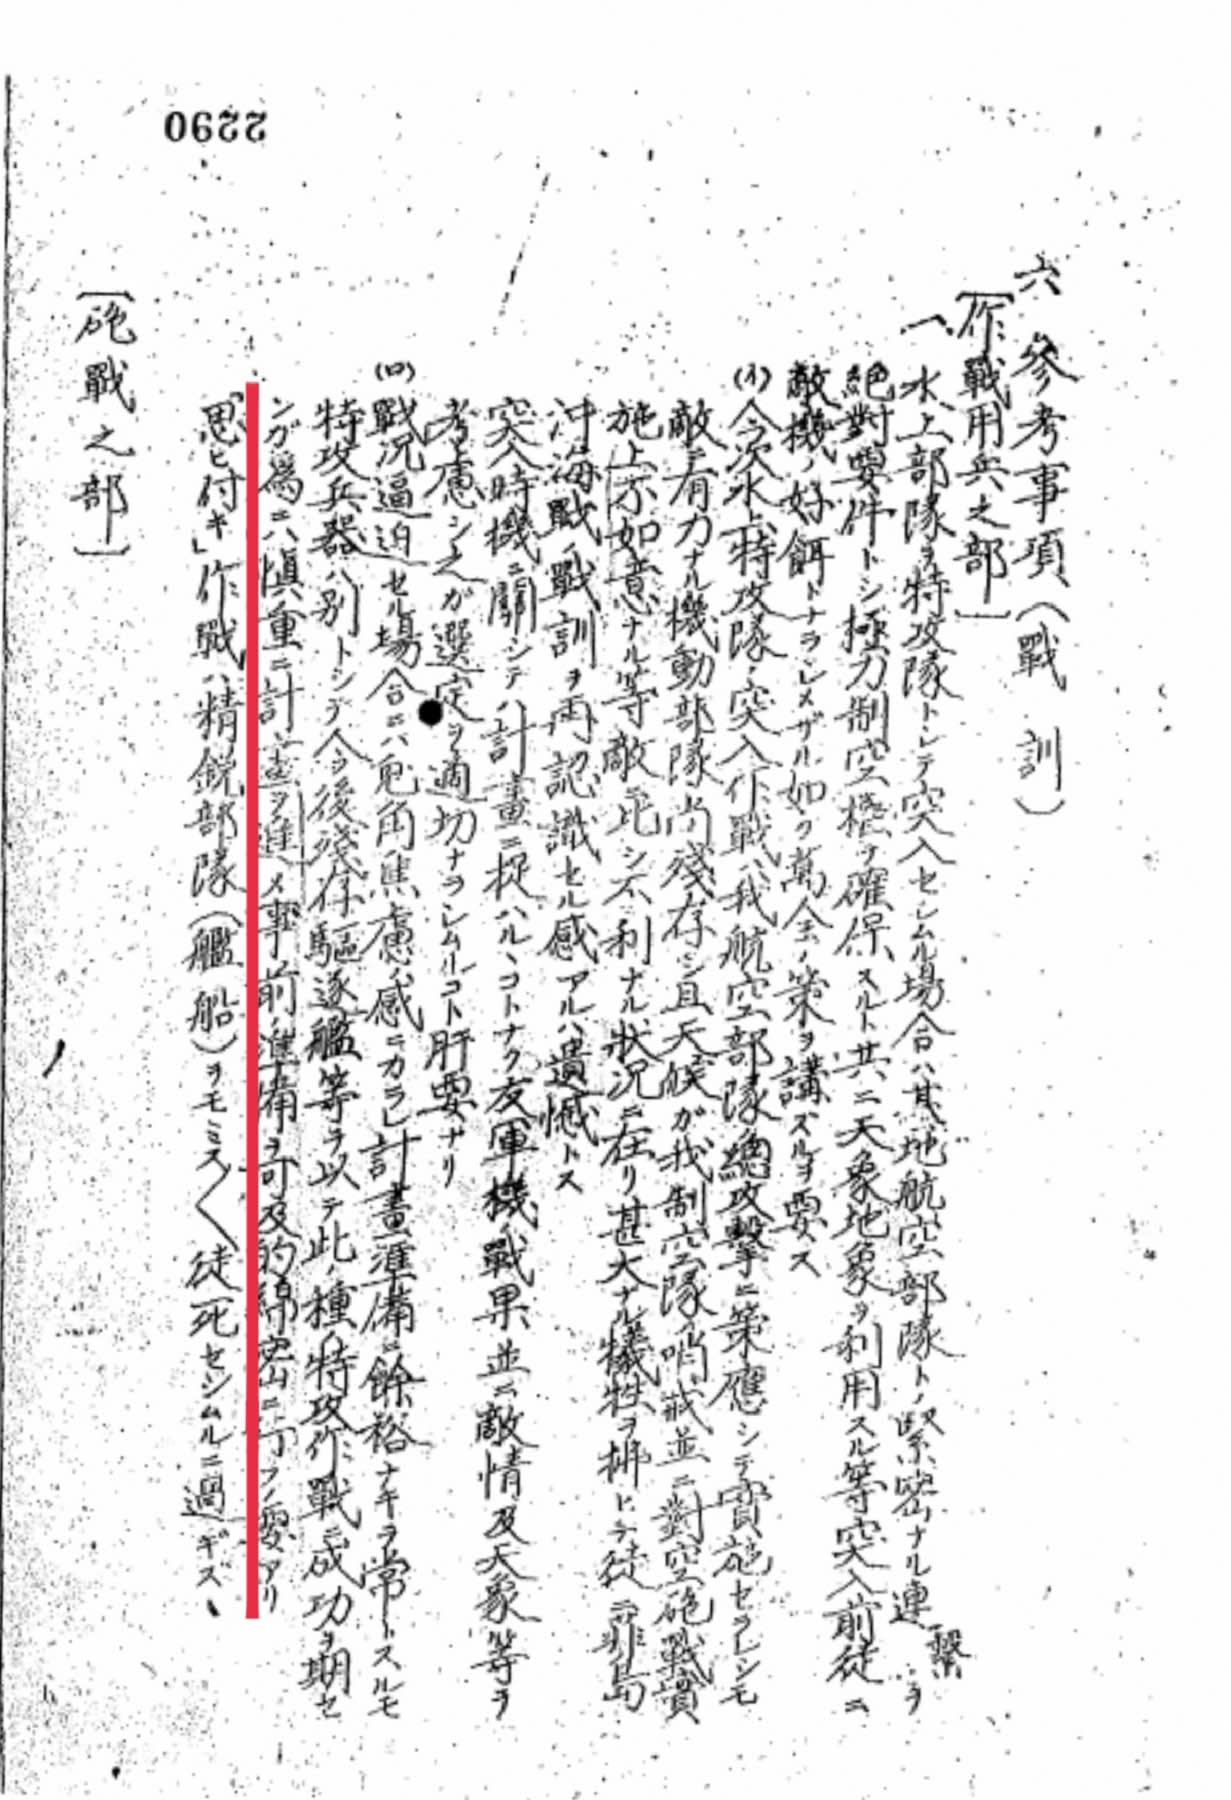 2290
六 參考事項（戰訓）
〔作戰用兵之部〕
一、水上部隊ヲ特攻隊トシテ突入セシムル場合ハ其ノ地航空部隊トノ緊密ナル連繫ヲ
絕對要件トシ極力制空權ヲ確保スルト共ニ天象地象ヲ利用スル等突入前徒ニ
敵機ノ好餌トナラシメザル如ク萬全ノ策ヲ講ズルヲ要ス
(イ)今次水上特攻隊ノ突入作戰ハ我航空部隊總攻擊ニ策應シテ實施セラレシモ
敵ニ有力ナル機動部隊尚殘存シ且天候ガ我制空隊ノ哨戒並ニ對空砲戰實
施上不如意ナル等敵ニ比シ不利ナル狀況ニ在リ甚大ナル犧牲ヲ拂ヒテ徒ニ菲島
沖海戰ノ戰訓ヲ再認識セル感アルハ遺憾トス
突入時機ニ關シテハ計畫ニ捉ハルヽコトナク友軍機ノ戰果並ニ敵情及天象等ヲ
考慮シ之ガ選定ヲ適切ナラシムルコト肝要ナリ
(ロ)戰況逼迫セル場合ニハ兎角焦慮ノ感ニカラレ計畫準備ニ餘裕ナキヲ常トスルモ
特攻兵器ハ別トシテ今後殘存驅逐艦等ヲ以テ此ノ種ノ特攻作戰ニ成功ヲ期セ
ンガ爲ニハ愼重ニ計畫ヲ進メ事前ノ準備ヲ可及的綿密ニ行フノ要アリ
「思ヒ付キ」作戰ハ精銳部隊（艦船）ヲモミス〱徒死セシムルニ過ギズ、
〔砲戰之部〕